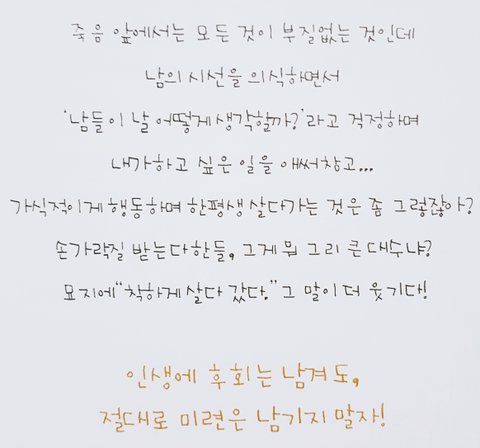 죽음 앞에서는 모든 것이 부질없는 것인데
남의 시선을 의식하면서
'남들이 날 어떻게 생각할까?'라고 걱정하며
내가하고 싶은 일을 애써참고...
가식적이게 행동하며 한평생 살다가는 것은 좀 그렇잖아?
손가락질 받는다한들, 그게 뭐 그리 큰 대수냐?
묘지에 "착하게 살다 갔다." 그 말이 더 웃기다!
인생에 후회는 남겨도,
절대로 미련은 남기지 말자!